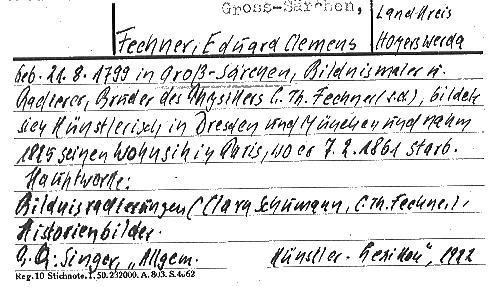 Gross-Särchen,
Land-Kreis
Hoyerswerda
Fechner, Eduard Clemens
geb. 21.8.1799 in Groß-Särchen, Bildnismaler u.
Radierer, Bruder des Physikers G. Th. Fechner (s.d.), bildete
sich künstlerisch in Dresden und München und nahm
1825 seinen Wohnsitz in Paris, wo er 7.2.1861 starb.
Hauptwerke:
Bildnisradierungen (Clara Schumann, G. Th. Fechner),
Historienbilder.
Singer, „Allgem. Künstler-Lexikon", 1922
Reg. 10 Stichnote. I. 50. 232000. A. 803. S. 4062